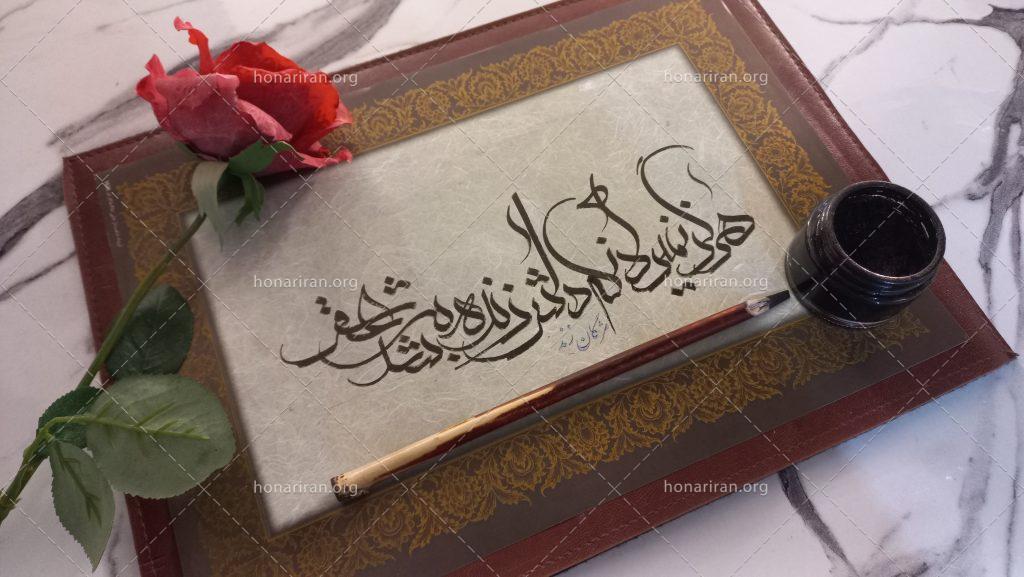 honariran.org honariran.org
هرگز نمیرد آنکه دلش زنده شد بعشق
honariran.org honariran.org
مژگان
honariran.org honariran.org